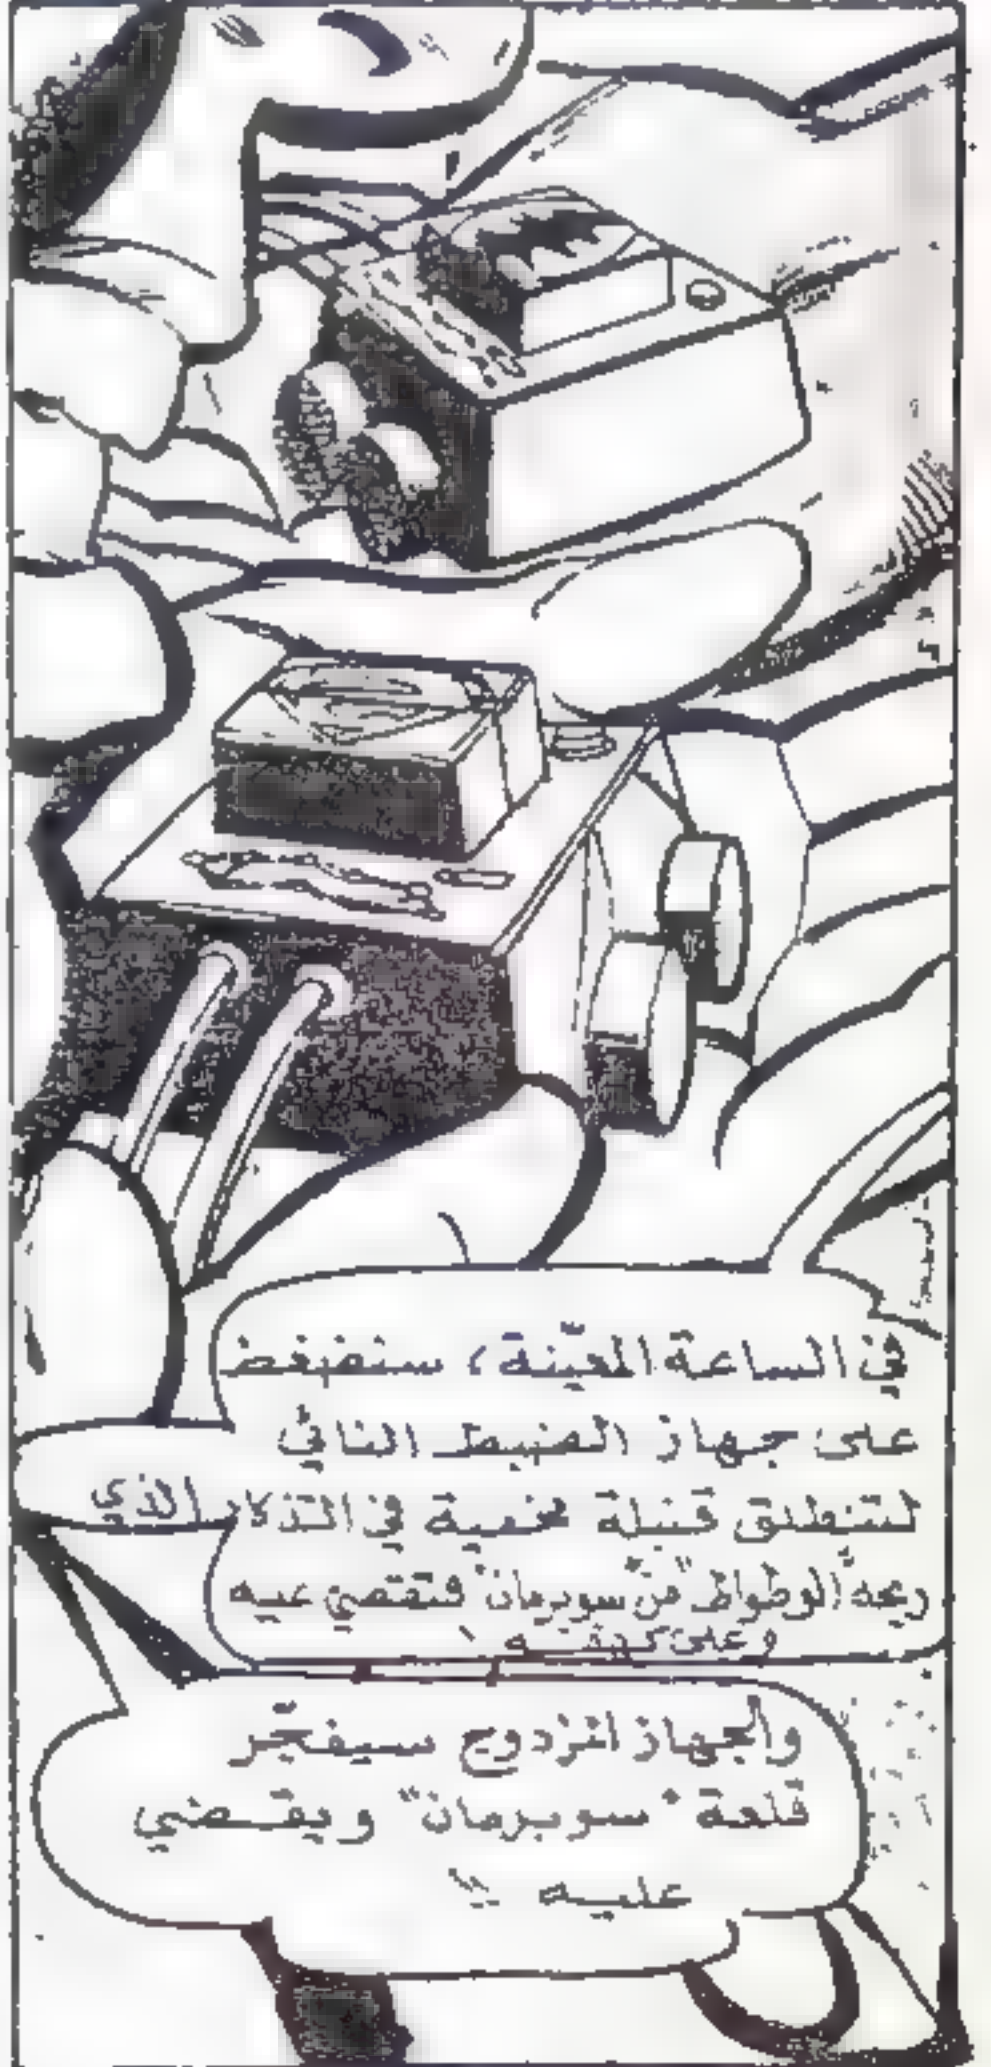 في الساعة المعيّنة، سنضغط
على جهاز الضبط الثاني
لتنطلق قنبلة مخفية في التذكار الذي
ربحه "الوطواط" من "سوبرمان" فتقضي عليه
وعلى كهفه
والجهاز المزدوج سيفجّر
قلعة "سوبرمان" ويقضي
عليه !!